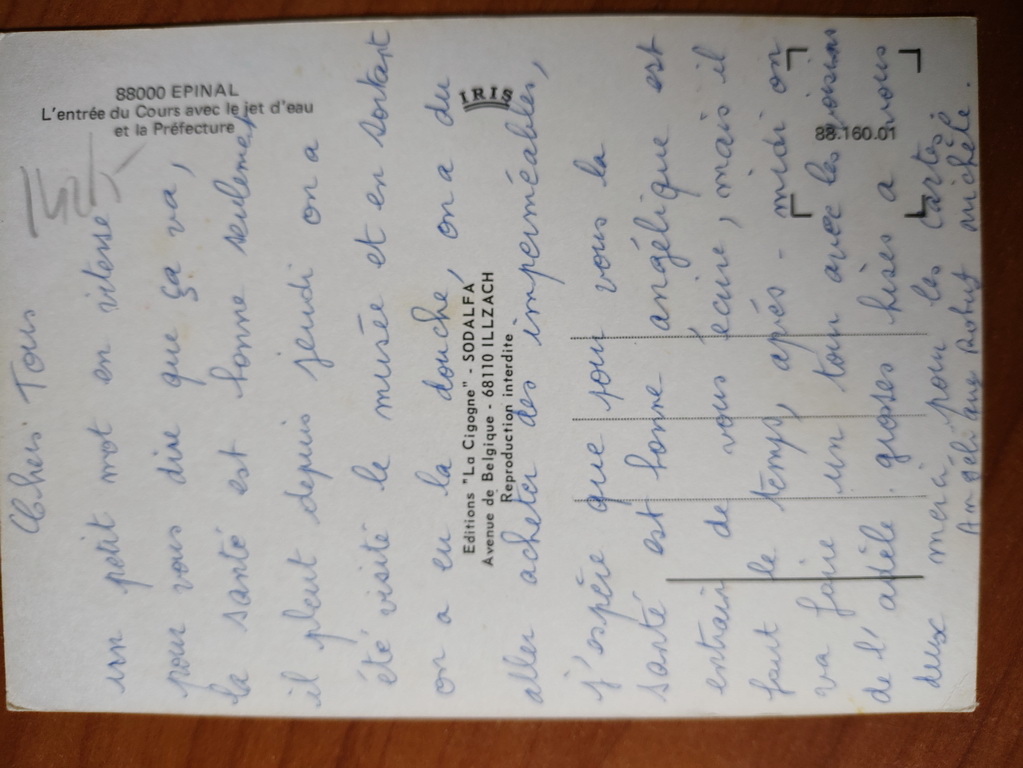 88000 EPINAL
L'entrée du Cours avec le jet d'eau
et la Préfecture
IRIS
88.160.01
Editions "La Cigogne" - SODALFA
Avenue de Belgique - 68110 ILLZACH
Reproduction interdite
Cheri Tous
un petit mot en vitesse
pour vous dire que ça va,
la santé est bonne seulement
il pleut depuis jeudi on a
été visité le musée et en sortant
on a eu la douche, on a du
aller acheter des imperméables,
j'espère que pour vous la
santé est bonne angélique est
entrain de vous écrire, mais il
faut le temps, après-midi on
va faire un tour avec les voisins
de l'adèle grosses bises a vous
deux merci pour les cartes
Angélique Robus michèle.